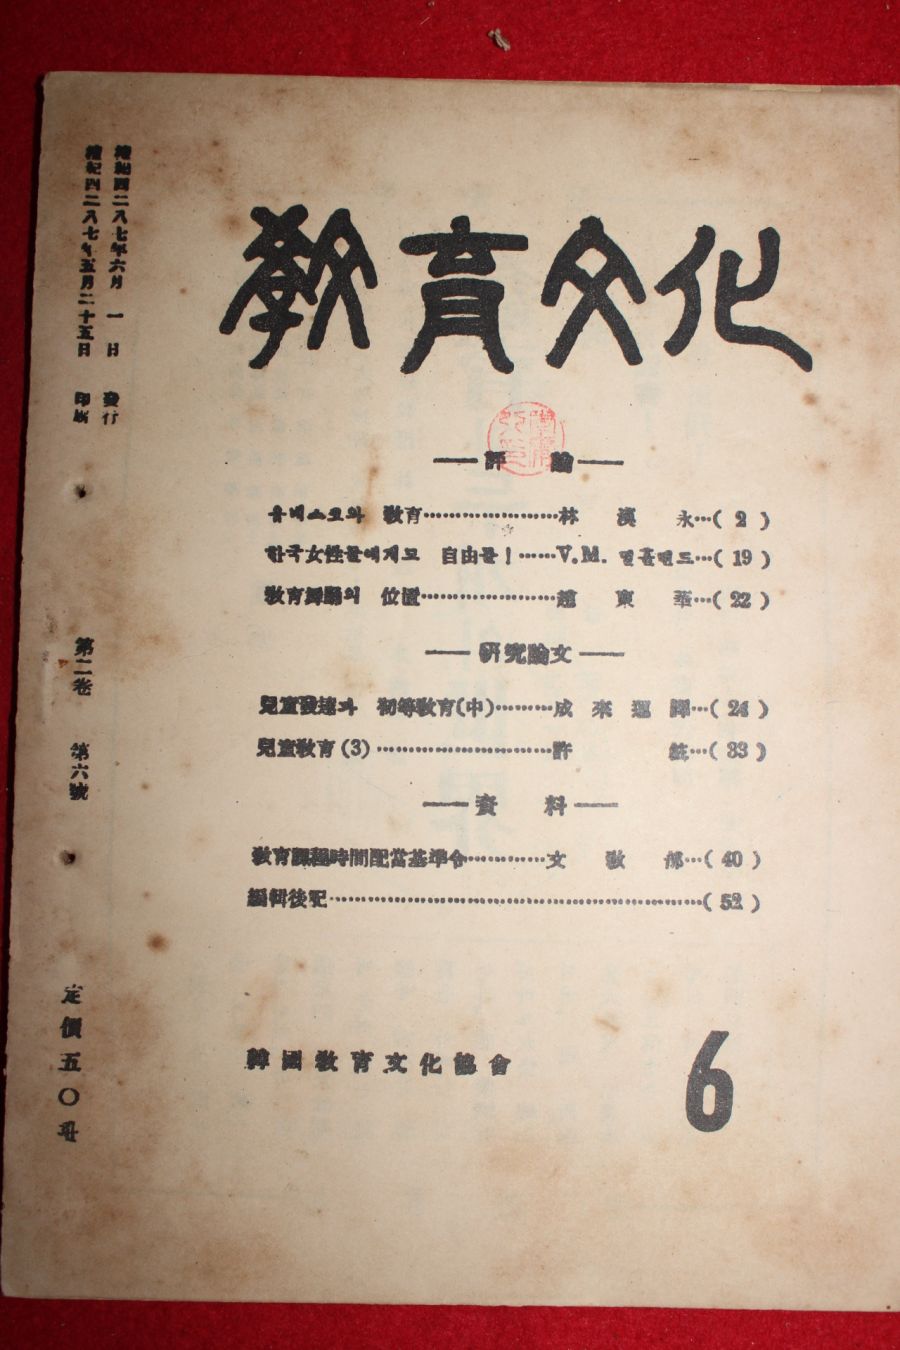 檀紀四二八七年六月 一 日 發行
檀紀四二八七年五月二十五日 印刷
第二卷 第六號
定價五〇환
教育文化
評 論
유네스코와 教育…林 漢 永…( 2 )
한국女性들에게도 自由를!…V.M.…( 19 )
教育舞踊의 位置…趙 東 華…( 22 )
研究論文
兒童發達과 初等教育(中)…成 來 運 譯…( 24 )
兒童教育(3)…許…( 33 )
資 料
教育課程時間配當基準令…文 敎 部…( 40 )
編輯後記…( 52 )
韓國敎育文化協會
6